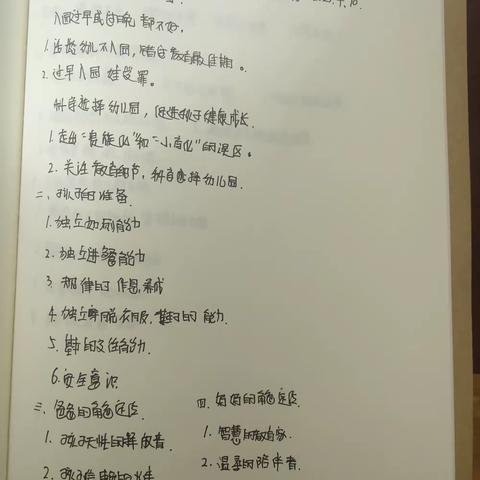 入园过早或过晚都不好。
1. 适龄幼儿不入园,错过教育最佳期。
2. 过早入园 娃受罪。
科学选择幼儿园,促进孩子健康成长.
1. 走出“贵族化”和“小学化”的误区。
2. 关注教育细节,科学选择幼儿园.
二、孩子的准备.
1. 独立如厕能力
2. 独立进餐能力
3. 规律的作息
4. 独立穿脱衣服、的能力.
5. 的交往能力.
6. 安全意识
三、爸爸的角色定位.
1. 孩子天性的释放者.
2. 孩子
四. 妈妈的角色定位.
1. 智慧的教育家.
2. 温柔的陪伴者.